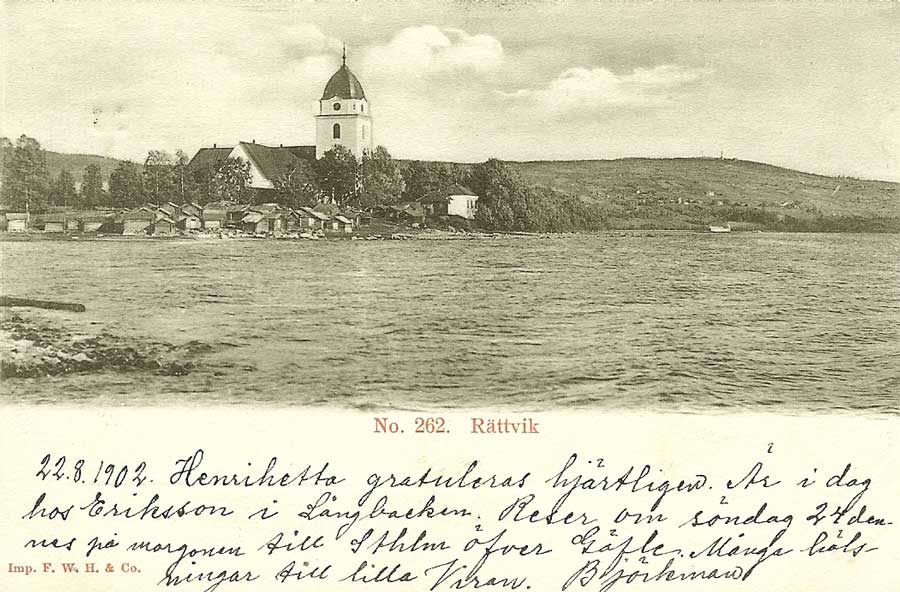 No. 262. Rättvik
22.8.1902. Henrihetta gratuleras hjärtligen. Är i dag
hos Eriksson i Långbacken. Reser om söndag 24 den-
nes på morgonen till Sthlm öfver Gäfle. Många häls-
Imp. F. W. H. & Co.
ningar till lilla Viran. Björkman